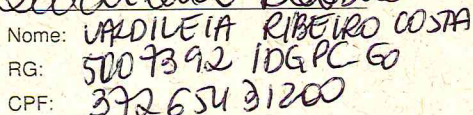 Nome: VALDILEIA RIBEIRO COSTA
RG: 5007392 IDGPC GO
CPF: 37265431200